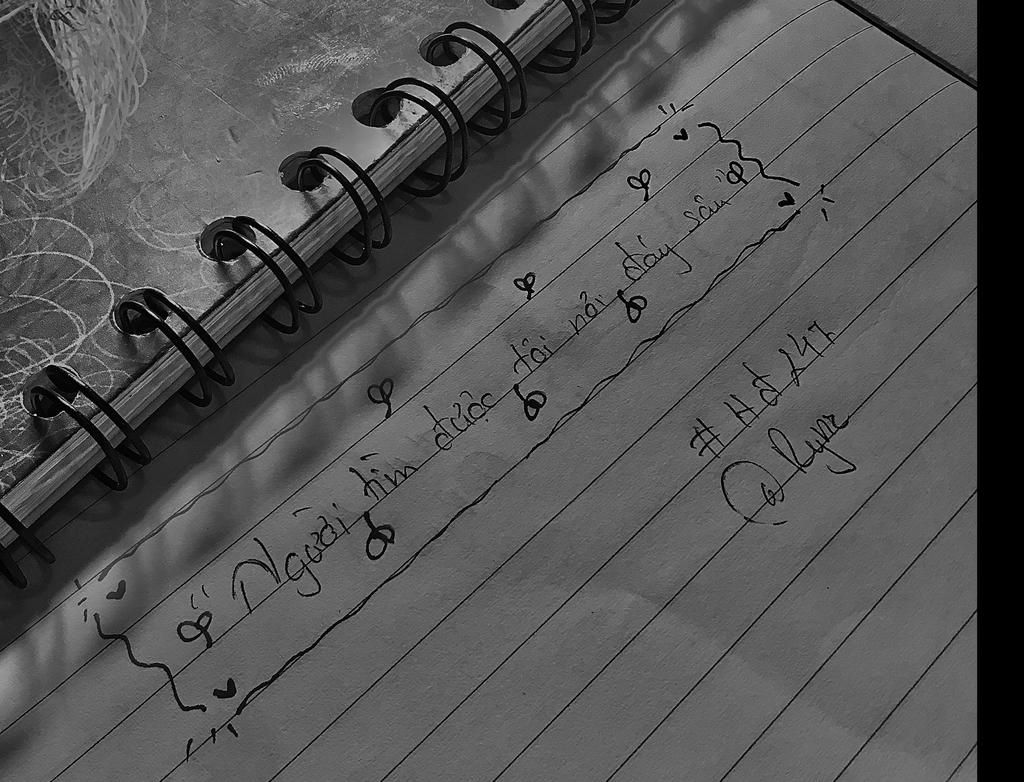 " Người tìm được tôi nơi đáy sâu "
# Hd247
@ Ryne